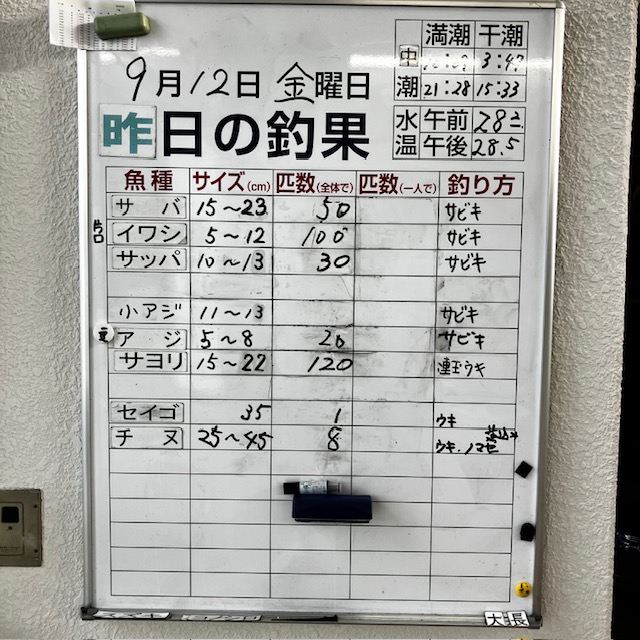 満潮 干潮
中潮 3:47
21:28 15:33
9月12日 金曜日
水温 午前 28.2
午後 28.5
昨日の釣果
魚種 サイズ(cm) 匹数(全体で) 匹数(一人で) 釣り方
サバ 15〜23 50 サビキ
片口 イワシ 5〜12 100 サビキ
サッパ 10〜13 30 サビキ
小アジ 11〜13 サビキ
豆 アジ 5〜8 20 サビキ
サヨリ 15〜22 120 連玉ウキ
セイゴ 35 1 ウキ
チヌ 25〜45 8 ウキ・ノマセ
大 長